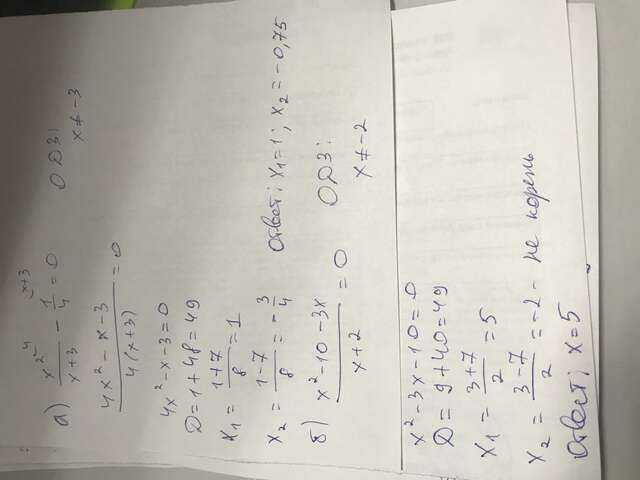 а) x²\4 / x+3 - 1\x+3 / 4 = 0 ОДЗ:
x ≠ -3
4x² - x - 3 / 4(x+3) = 0
4x² - x - 3 = 0
D = 1 + 48 = 49
x₁ = 1+7 / 8 = 1
x₂ = 1-7 / 8 = - 3/4 Ответ: x₁ = 1; x₂ = -0,75
б) x² - 10 - 3x / x+2 = 0 ОДЗ:
x ≠ -2
x² - 3x - 10 = 0
D = 9 + 40 = 49
x₁ = 3+7 / 2 = 5
x₂ = 3-7 / 2 = -2 - не корень
Ответ: x = 5